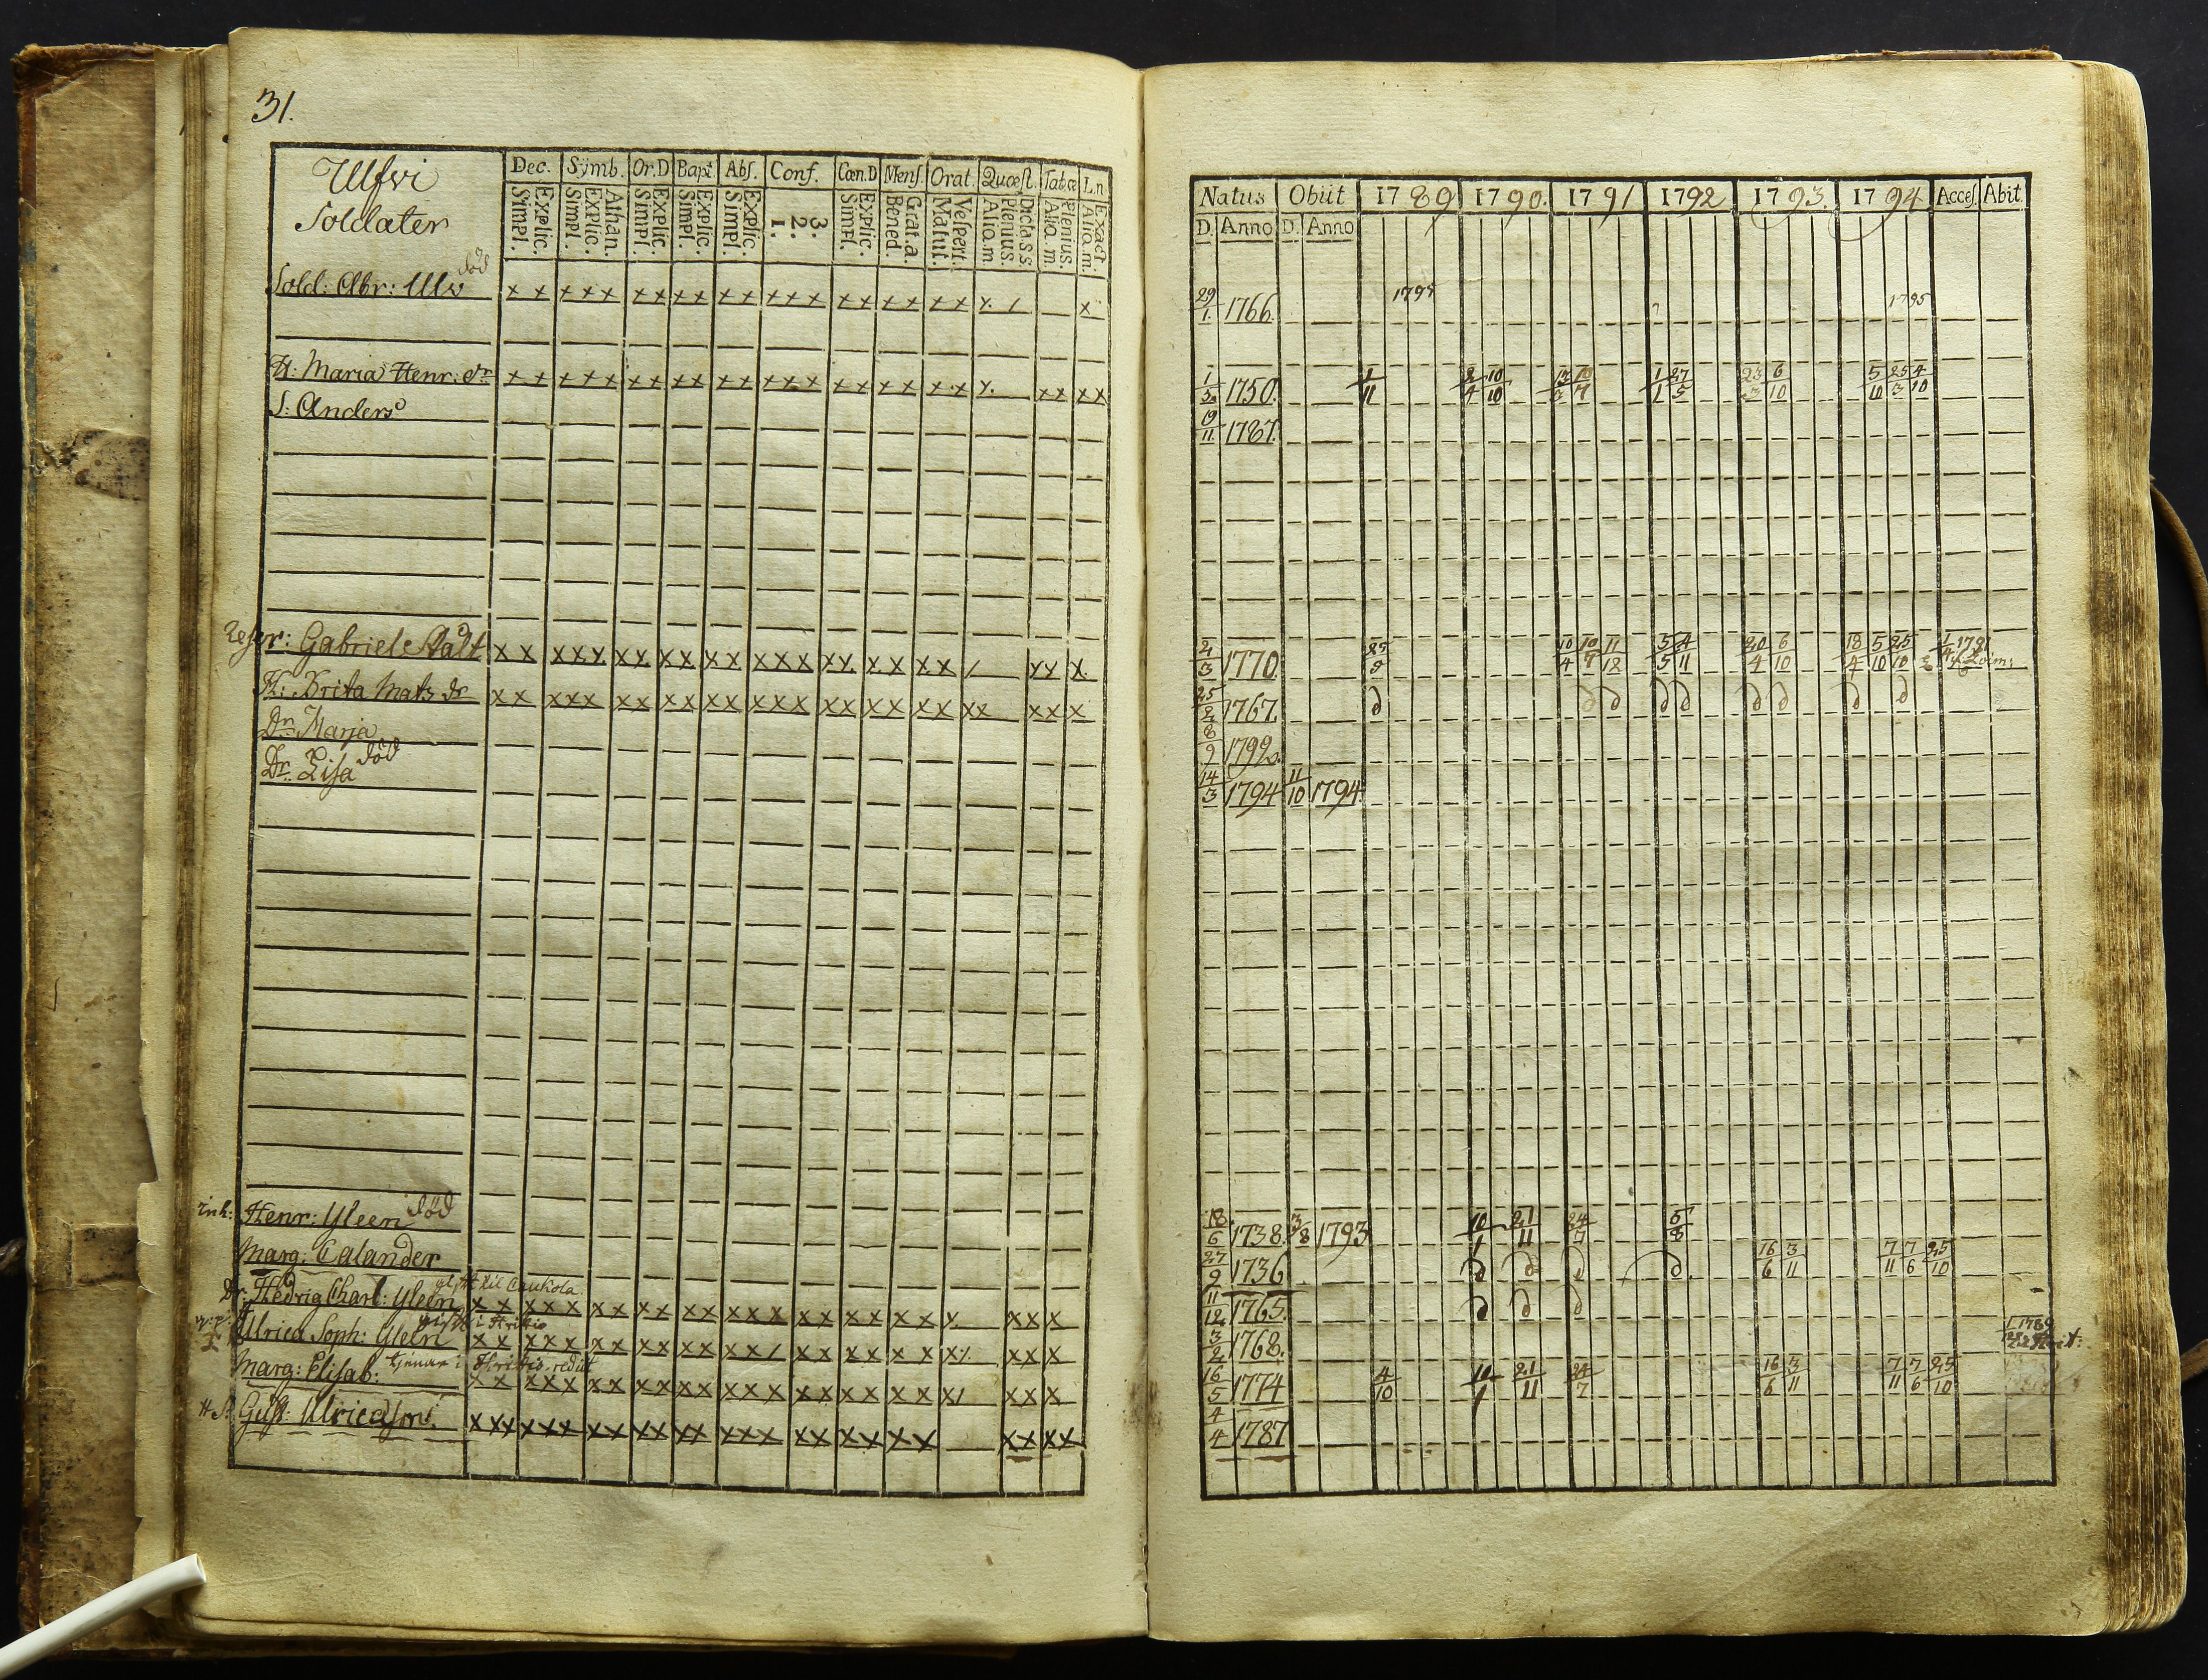 31.
Ulfvi
Soldater
Dec. Symb. Or.D Bapt. Abs. Conf. Cœn.D Mens. Orat. Quæst. Tabæ L.n.
Explic. Simpl. Athan. Explic. Simpl. Explic. Simpl. Explic. Simpl. Explic. Simpl. 3. 2. 1. Explic. Simpl. Grat.a. Bened. Vespert. Matut. Dicta.s.s. Plenius. Alio.m. Plenius. Alio.m Exact. Alio.m.
död
Sold: Abr: Ulv x x x x x x x x x x x x x x x x x x x x x
H: Maria Henr: dr x x x x x x x x x x x x x x x x x x x x x x x x x
S: Anders
Gabriel x x x x x x x x x x x x x x x x x x x x x x x x
H: Brita Mats dr x x x x x x x x x x x x x x x x x x x x x x x x x
Dr Maria
Dr. Lisa död
Inh: Henr: Yleen död
Marg: Calander
gift til Caukola
Dr: Hedvig Charl: Yleen x x x x x x x x x x x x x x x x x x x x x x x x
Ulrica Soph: Yleen x x x x x x x x x x x x x x x x x x x x x x x
Marg: Elisab: tjenar i x x x x x x x x x x x x x x x x x x x x x x x
Gust: Ulricæson x x x x x x x x x x x x x x x x x x x x x x x x
Natus Obiit 1789 1790. 1791 1792 1793. 1794 Acces. Abit.
D. Anno D. Anno
29/1. 1766. 1795
1/3. 1750. 1/11 2/4 10/10 1/1 27/5 23/3 6/10 5/10 25/3 4/10
9/11. 1787.
2/3 1770. 10/4 10/7 11/12 5/5 4/11 20/4 6/10 18/4 5/10 25/10
25/2 1767. d d d d d d d d d
8/9 1792.
14/3 1794 11/10 1794.
18/6 1738. 3/8 1793 10/1 21/11 24/7 5/8
27/9 1736 d d d d 16/6 3/11 7/11 7/6 25/10
11/12 1765. d d d
3/2 1768.
16/5 1774 4/10 10/1 21/11 24/7 16/6 3/11 7/11 7/6 25/10
4/4 1787